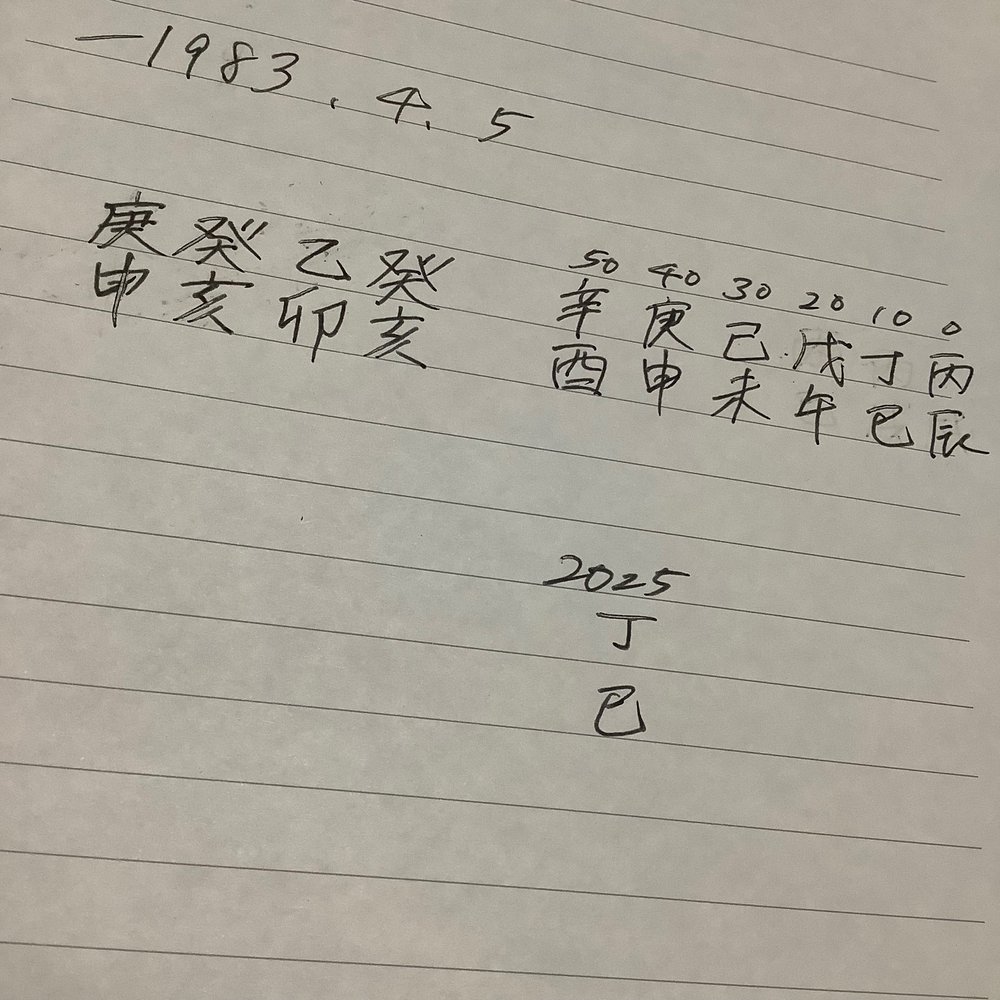 一1983.4.5
庚 癸 乙 癸
申 亥 卯 亥
50 40 30 20 10 0
辛 庚 己 戊 丁 丙
酉 申 未 午 巳 辰
2025
丁
巳